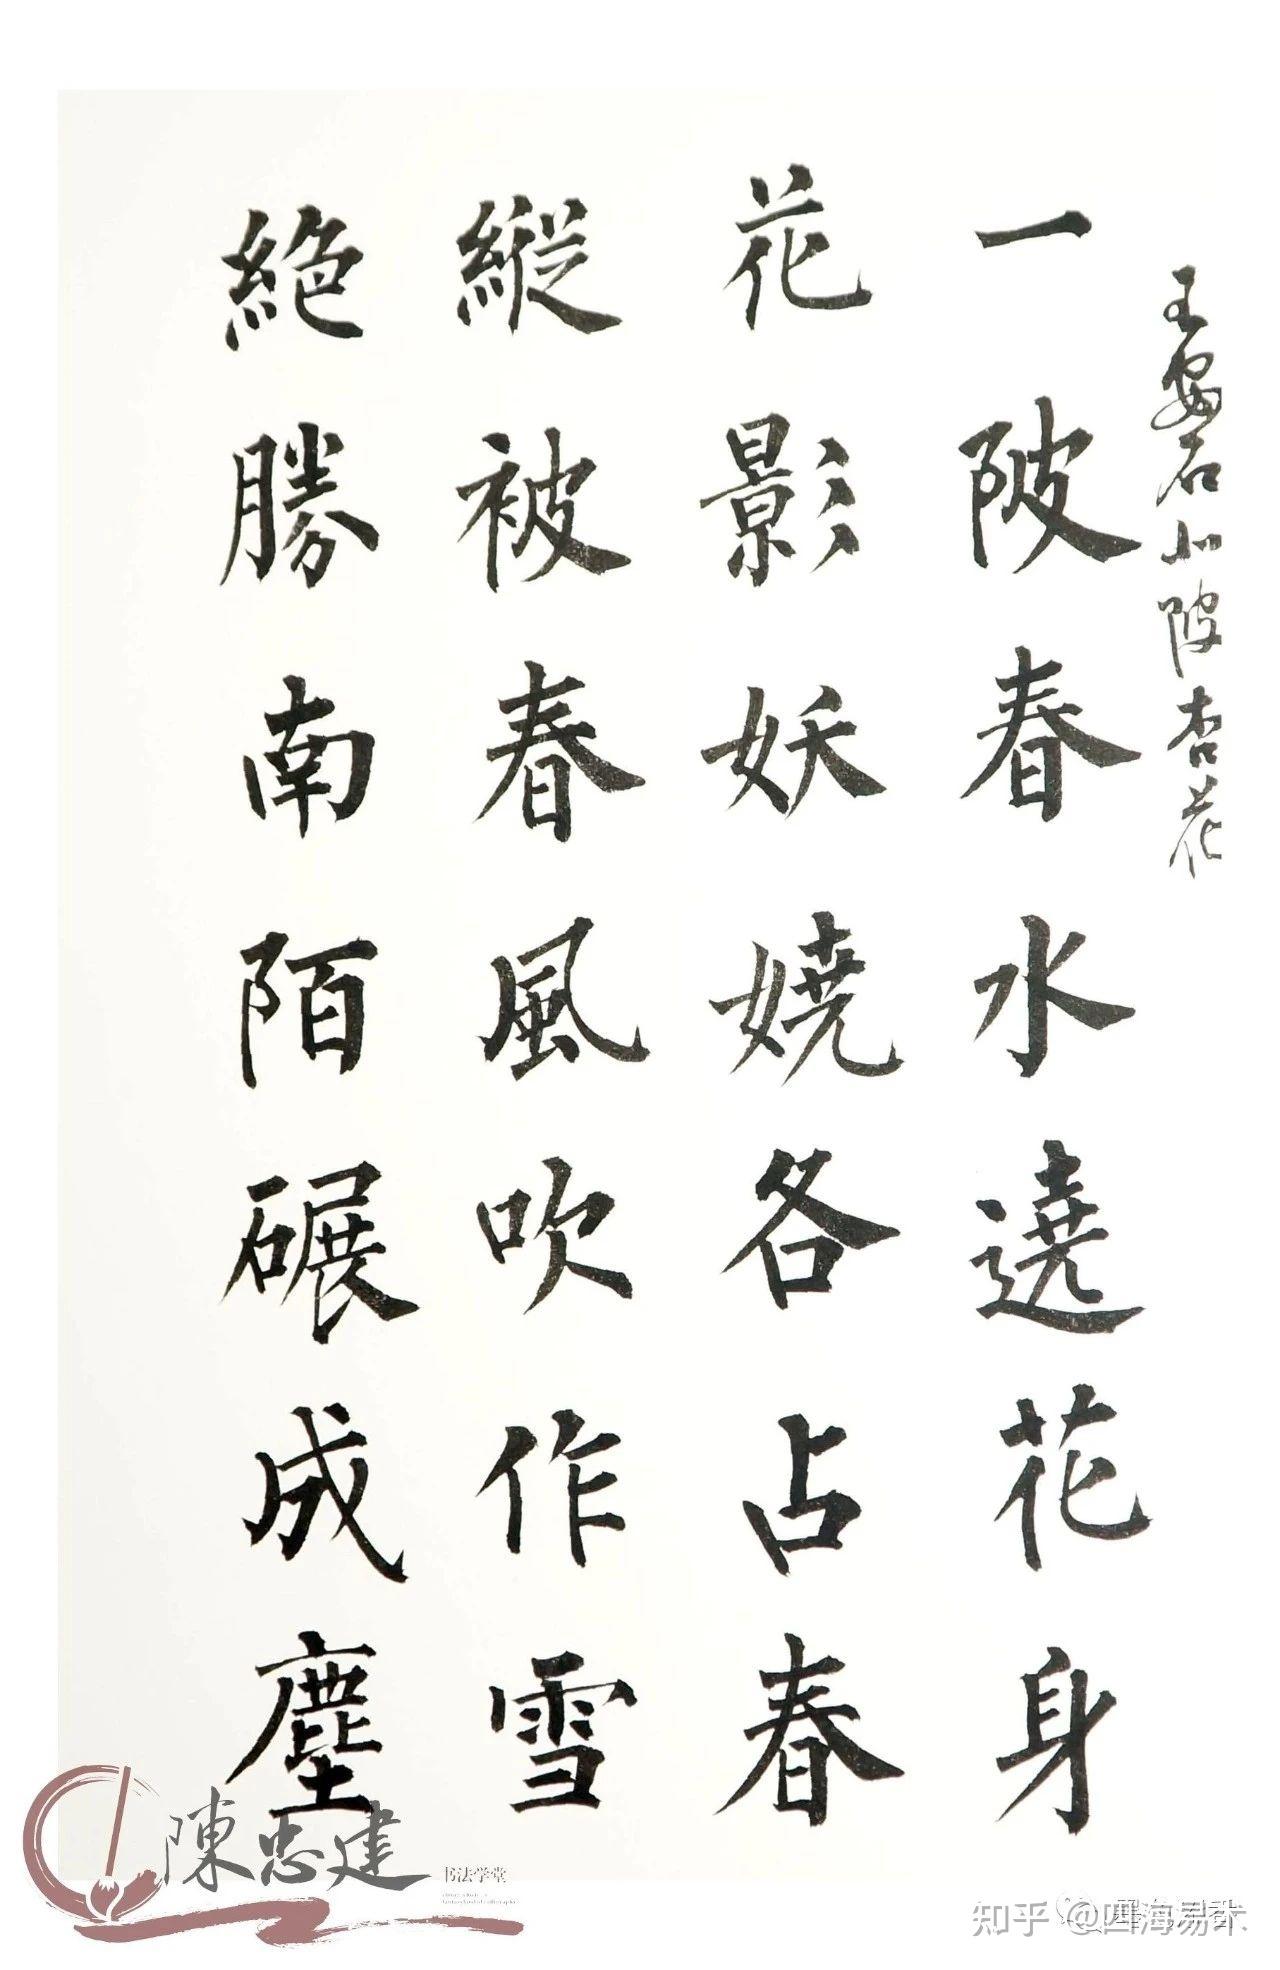 王安石北陂杏花
一陂春水遶花身
花影妖嬈各占春
縱被春風吹作雪
絕勝南陌碾成塵
陳忠建
书法学堂
知乎 @四海易朴